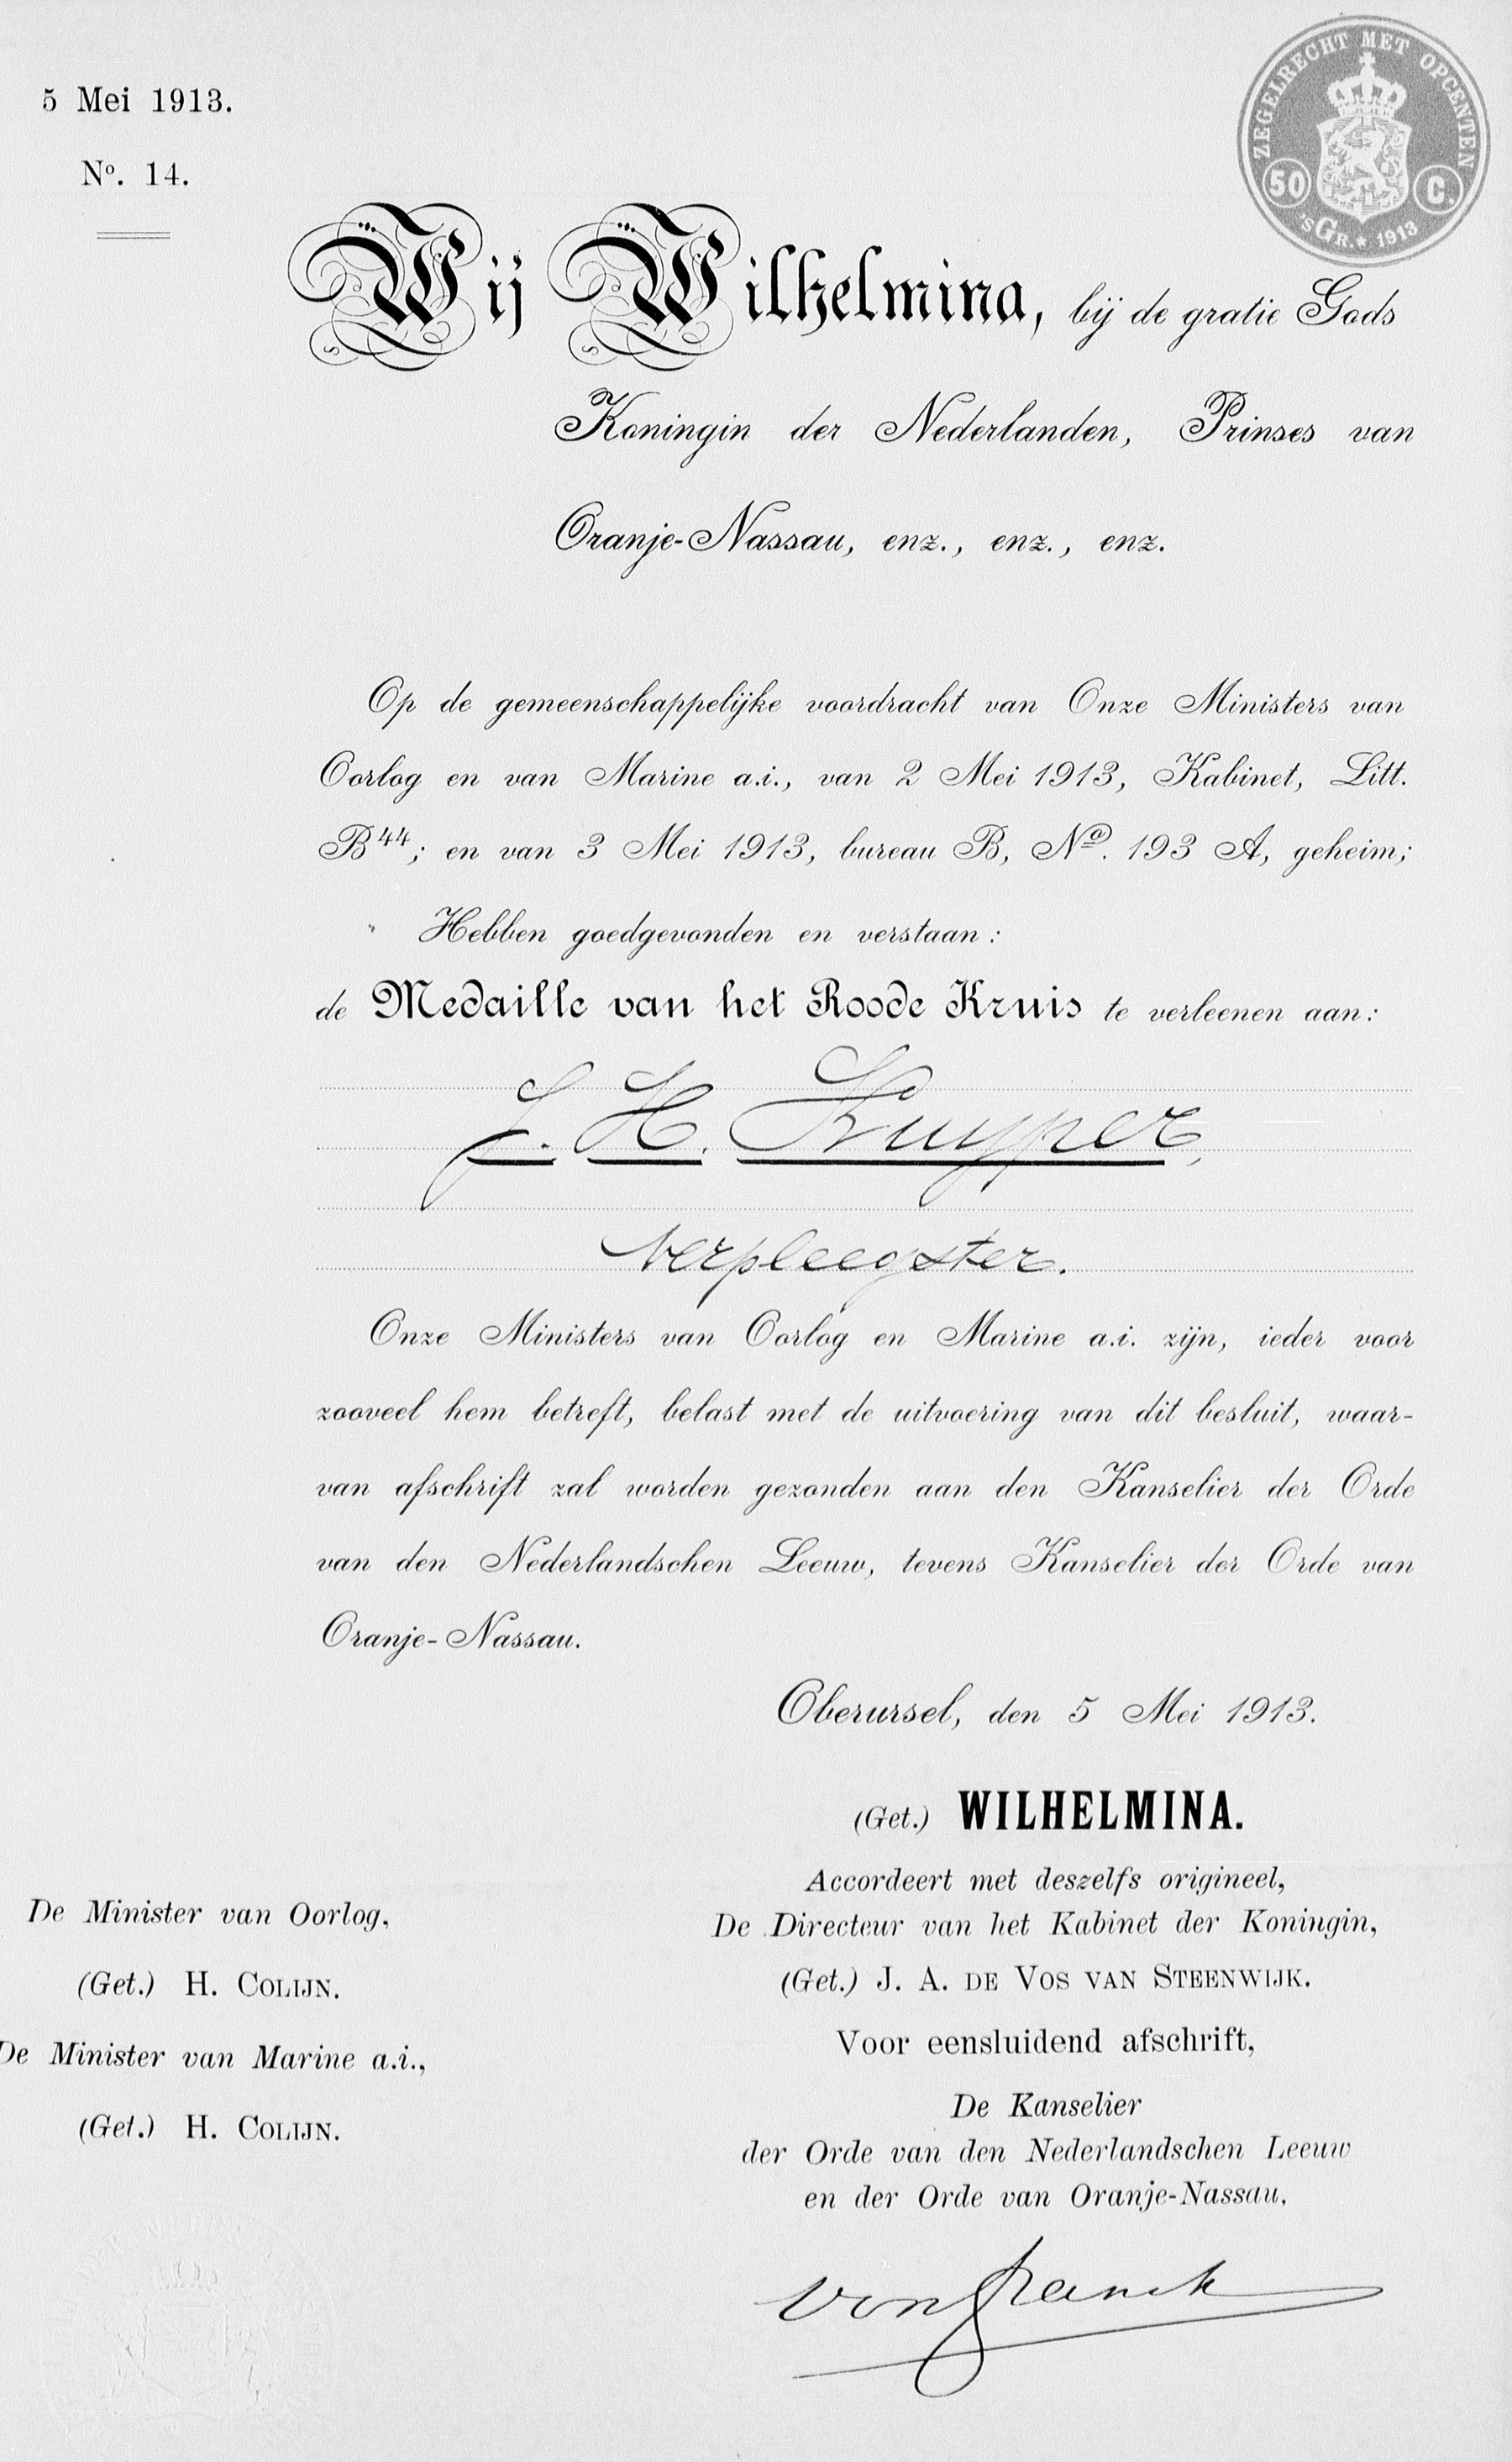 5 Mei 1913.
Nº. 14.
ZEGELRECHT MET OPCENTEN
50 C.
'sGR. * 1913
Wij Wilhelmina, bij de gratie Gods
Koningin der Nederlanden, Prinses van
Oranje-Nassau, enz., enz., enz.
Op de gemeenschappelijke voordracht van Onze Ministers van
Oorlog en van Marine a.i., van 2 Mei 1913, Kabinet, Litt.
B⁴⁴; en van 3 Mei 1913, bureau B, Nº. 193 A, geheim;
Hebben goedgevonden en verstaan:
de Medaille van het Roode Kruis te verleenen aan:
J. H. Kuyper,
verpleegster.
Onze Ministers van Oorlog en Marine a.i. zijn, ieder voor
zooveel hem betreft, belast met de uitvoering van dit besluit, waar-
van afschrift zal worden gezonden aan den Kanselier der Orde
van den Nederlandschen Leeuw, tevens Kanselier der Orde van
Oranje-Nassau.
Oberursel, den 5 Mei 1913.
(Get.) WILHELMINA.
Accordeert met deszelfs origineel,
De Directeur van het Kabinet der Koningin,
(Get.) J. A. DE VOS VAN STEENWIJK.
Voor eensluidend afschrift,
De Kanselier
der Orde van den Nederlandschen Leeuw
en der Orde van Oranje-Nassau,
De Minister van Oorlog,
(Get.) H. COLIJN.
De Minister van Marine a.i.,
(Get.) H. COLIJN.